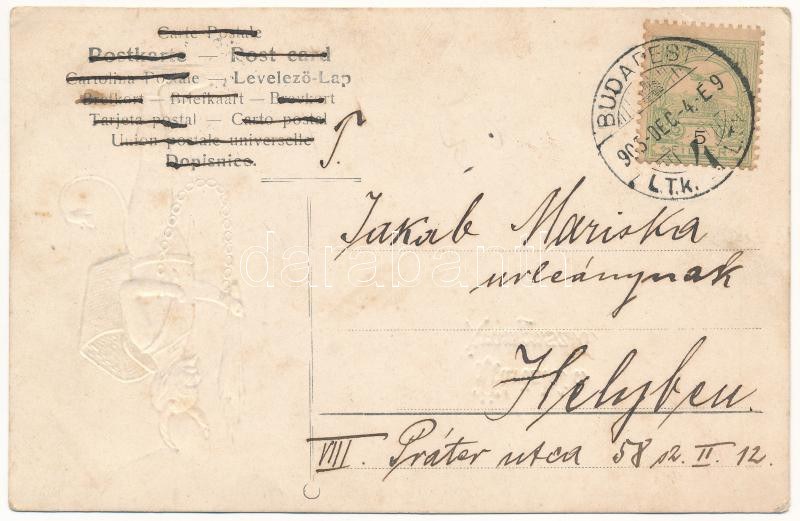 Carte Postale
Postkarte — Post card
Cartolina Postale — Levelező-Lap
Brefkort — Briefkaart — Brevkort
Tarjeta postal — Carto postal
Union postale universelle
Dopisnice.
T.
BUDAPEST
DEC. 4. É 9
I.T.k.
5
Jakab Mariska
urleánynak
Helyben.
VIII. Práter utca 58 sz. II. 12.
darabanth